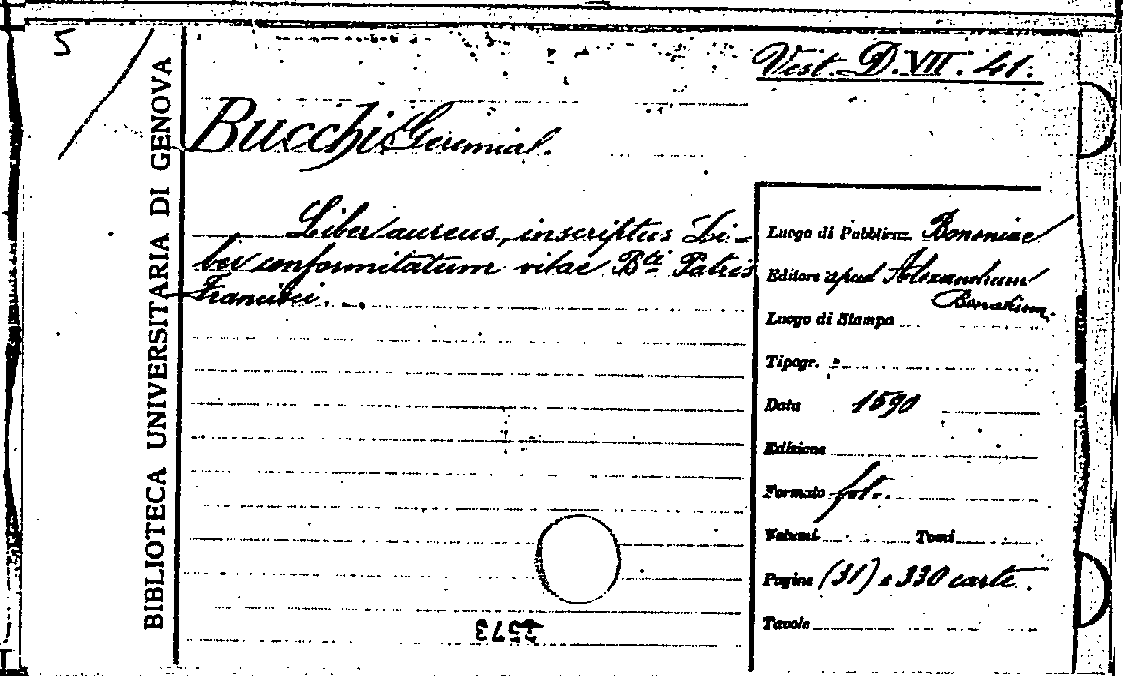 5
Vest. D. VII. 41.
BIBLIOTECA UNIVERSITARIA DI GENOVA
Bucchi Geremia
Liber aureus, inscriptus Li-
ber conformitatum vitae Bti Patris
Francisci...
Luogo di Pubblicaz. Bononiae
Editore apud Alexandrum
Benatium.
Luogo di Stampa
Tipogr.
Data 1590
Edizione
Formato fol.
Volumi Tomi
Pagine (31) e 330 carte.
Tavole
2573